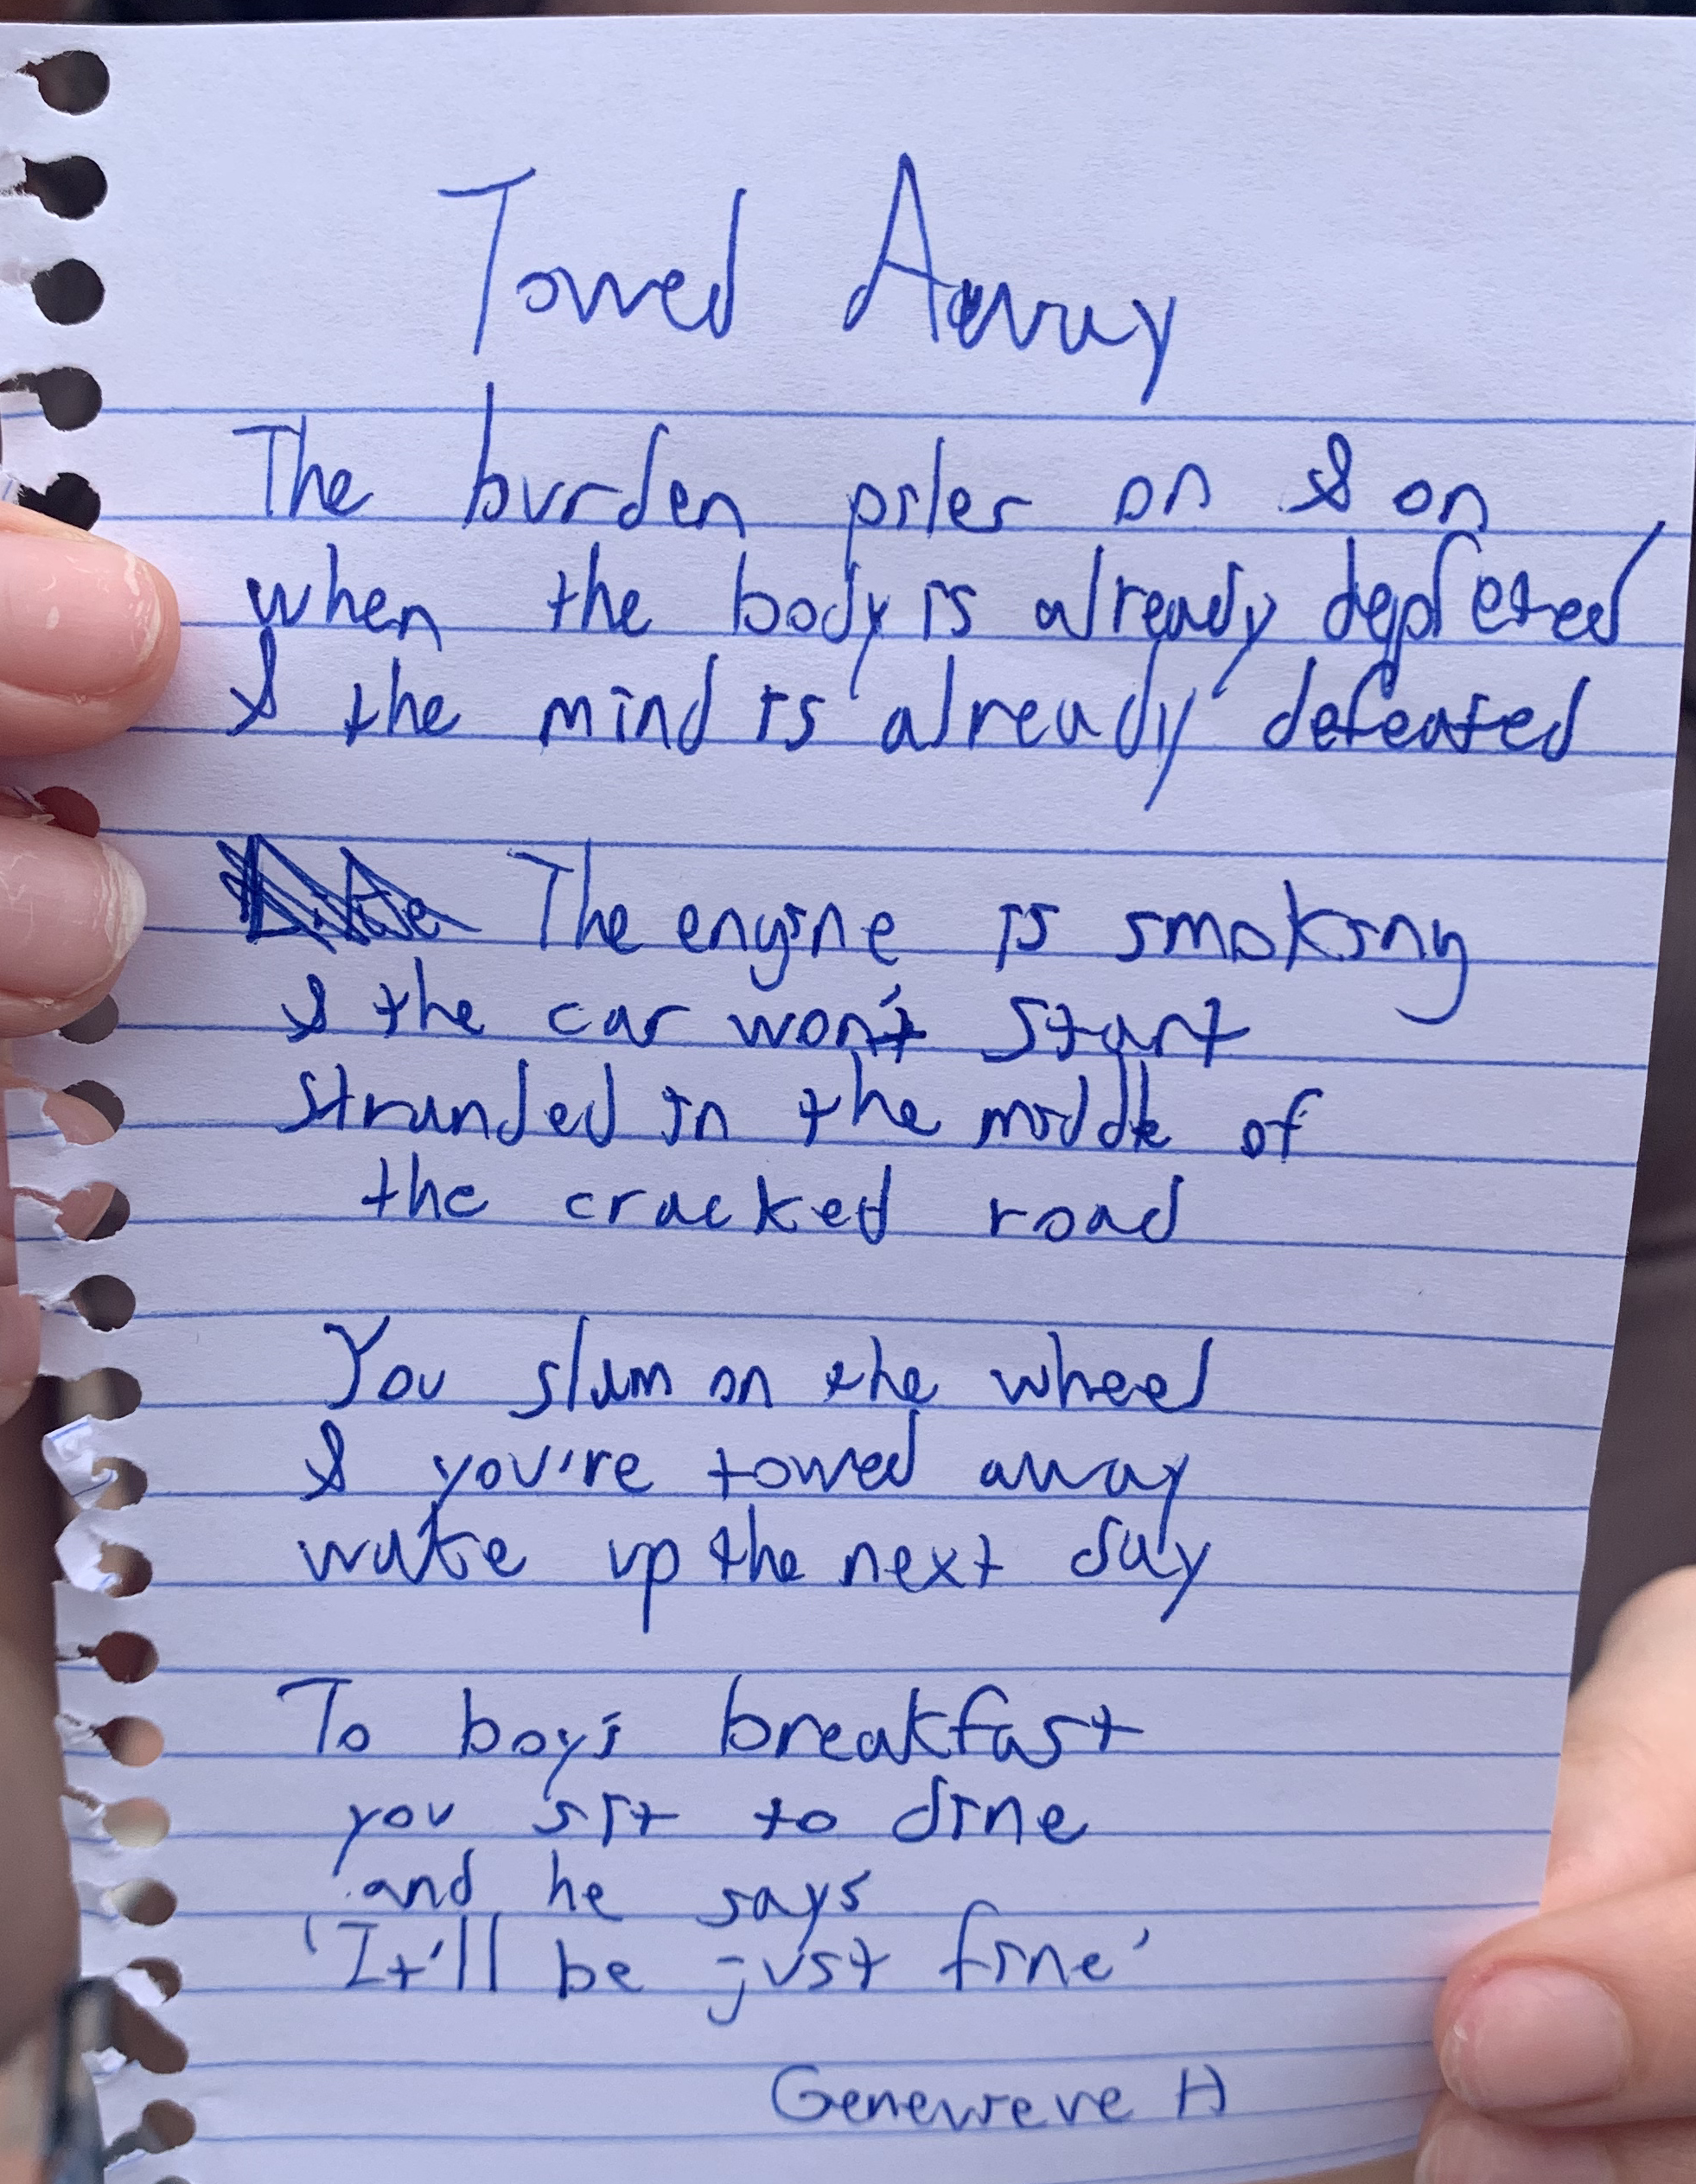 Towed Away
The burden piles on & on
when the body is already depleted
& the mind is already defeated
The engine is smoking
& the car won't start
stranded in the middle of
the cracked road
You slam on the wheel
& you're towed away
wake up the next day
To boy's breakfast
you sit to dine
and he says
'It'll be just fine'
Genevieve H